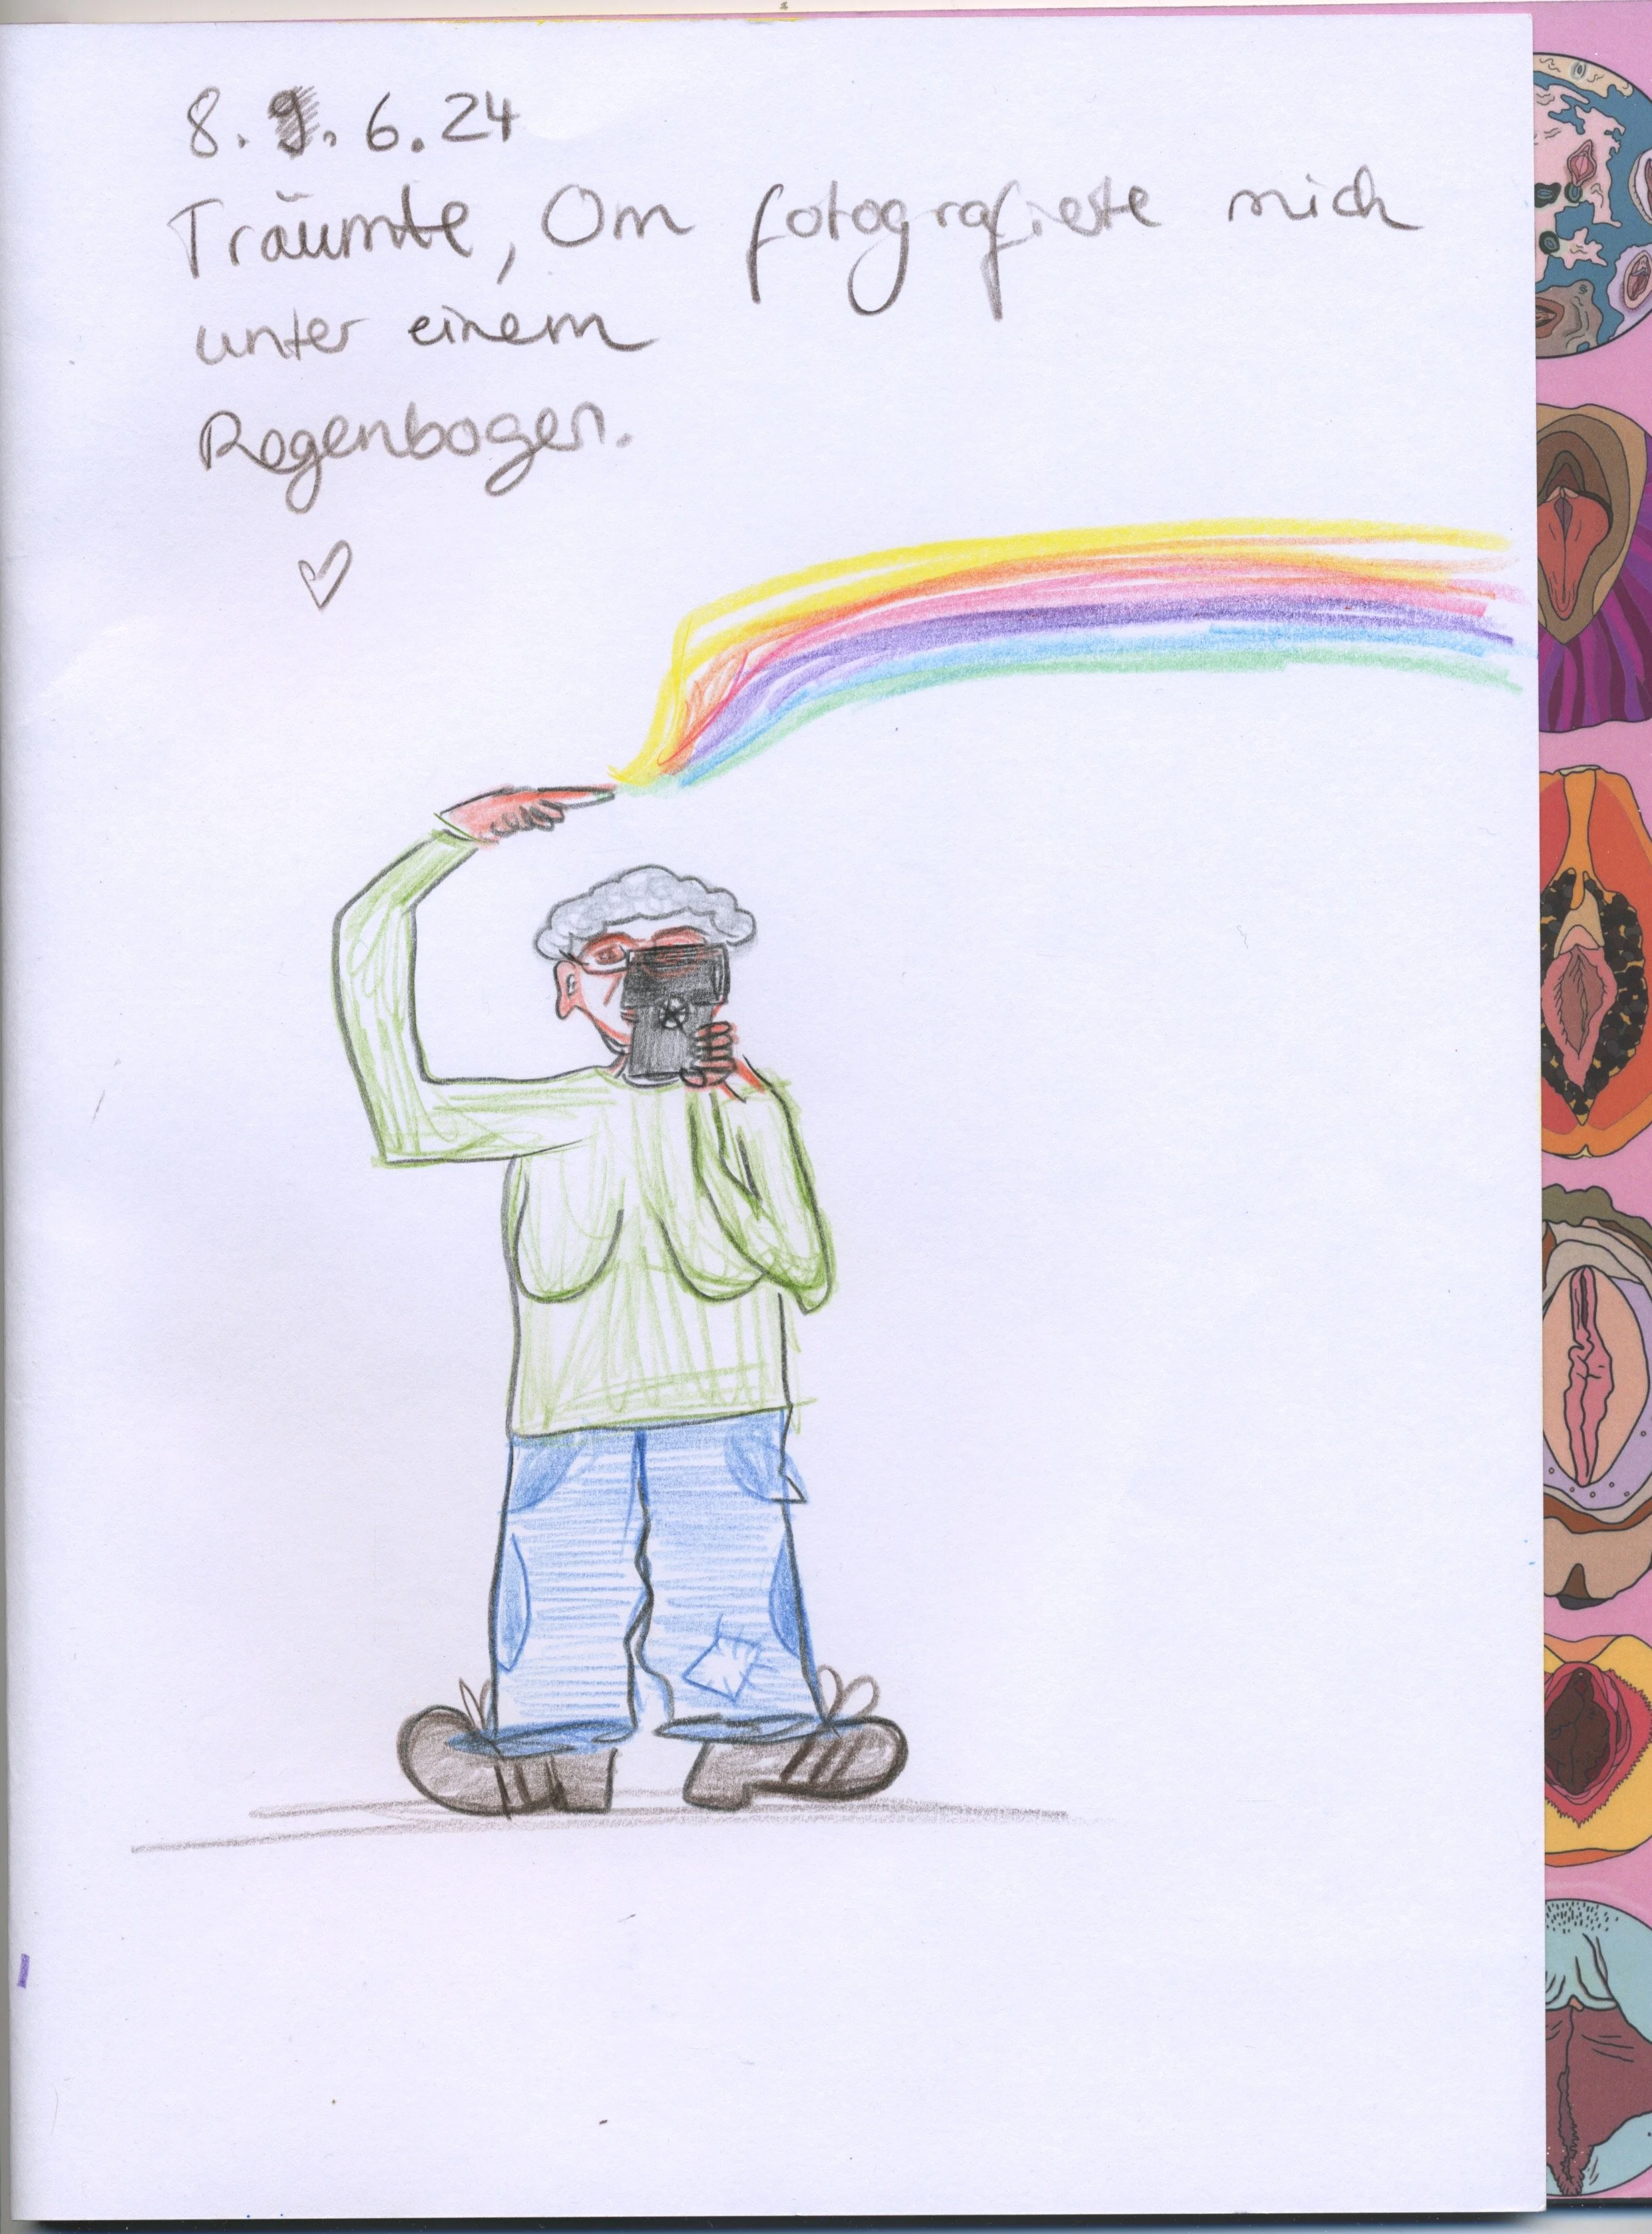 8. 9. 6.24
Träumte, Om fotografierte mich
unter einem
Regenbogen.